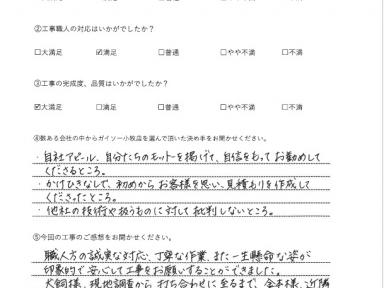 ②工事職人の対応はいかがでしたか?
□大満足 ☑満足 □普通 □やや不満 □不満
③工事の完成度、品質はいかがでしたか?
☑大満足 □満足 □普通 □やや不満 □不満
④数ある会社の中からガイソー小牧店を選んで頂いた決め手をお聞かせください。
・自社アピール、自分たちのモットーを掲げて、自信をもってお勧めして
くださるところ。
・かけひきなしで、初めからお客様を思い、見積もりを作成して
くださったところ。
・他社の技術や扱うものに対して批判しないところ。
⑤今回の工事のご感想をお聞かせください。
職人方の誠実な対応、丁寧な作業、また一生懸命な姿が
印象的で安心して工事をお願いすることができました。
犬飼様、現地調査から打ち合わせに至るまで、金本様、近隣